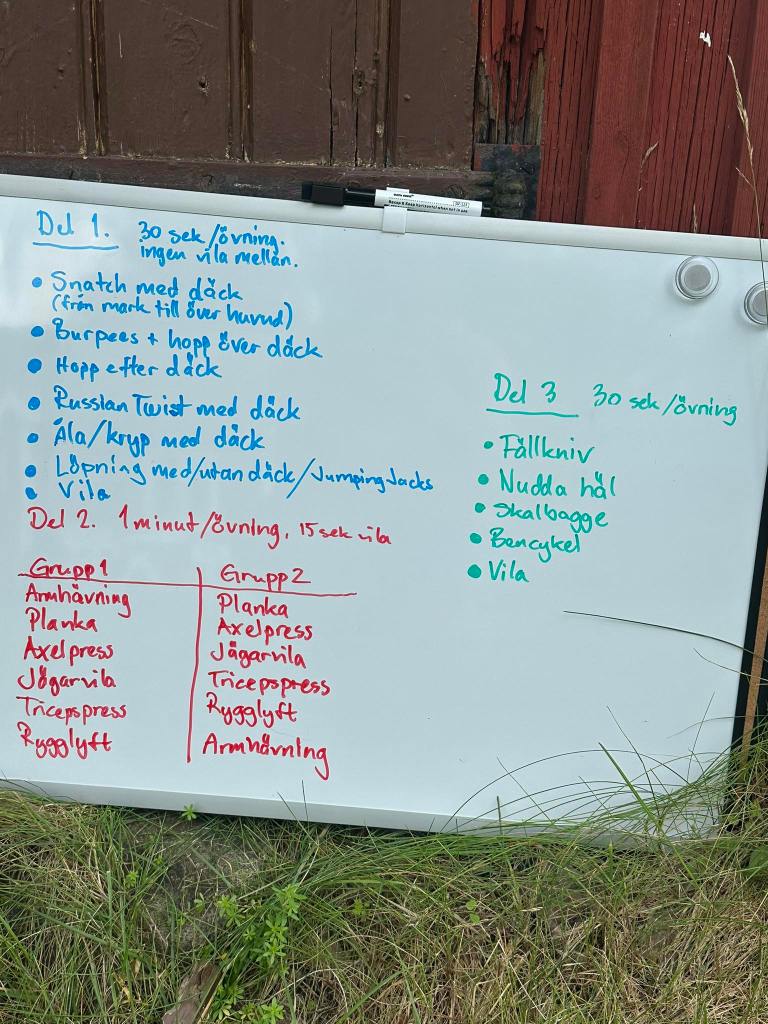 Del 1. 30 sek/övning.
ingen vila mellan.
• Snatch med däck
(från mark till över huvud)
• Burpees + hopp över däck
• Hopp efter däck
• Russian Twist med däck
• Åla/kryp med däck
• Löpning med/utan däck/Jumping Jacks
• Vila
Del 2. 1 minut/övning, 15 sek vila
Grupp 1 Grupp 2
Armhävning Planka
Planka Axelpress
Axelpress Jägarvila
Jägarvila Tricepspress
Tricepspress Rygglyft
Rygglyft Armhävning
Del 3 30 sek/övning
• Fällkniv
• Nudda häl
• Skalbagge
• Bencykel
• Vila